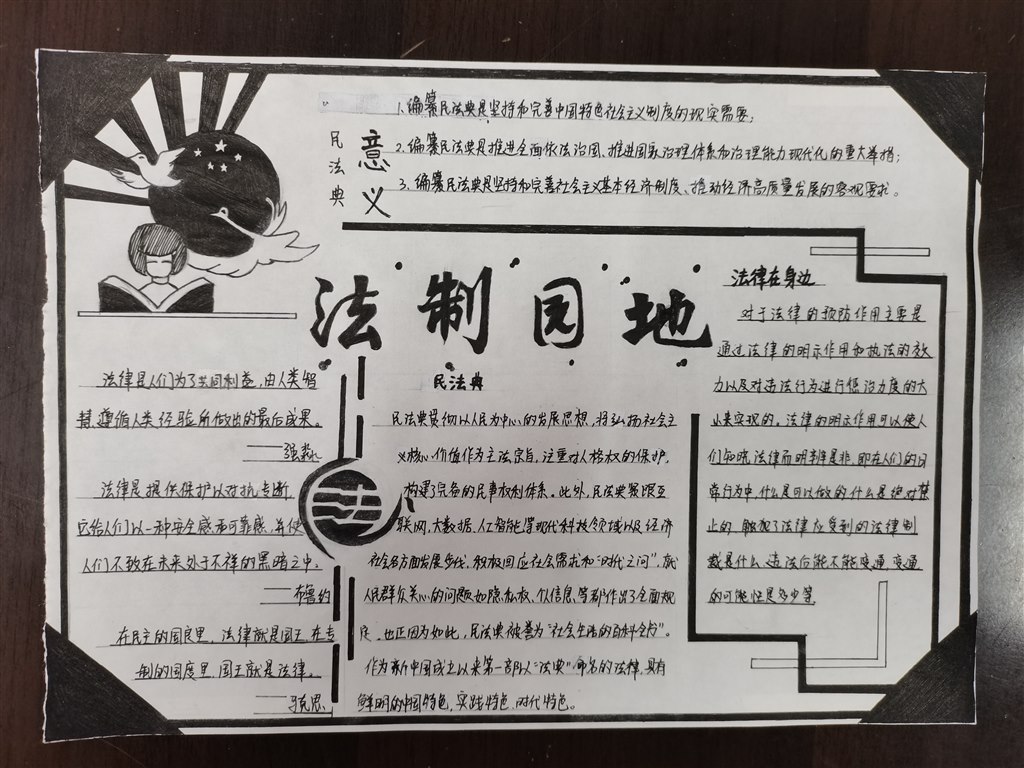 民法典
意义
1.编纂民法典是坚持和完善中国特色社会主义制度的现实需要；
2.编纂民法典是推进全面依法治国、推进国家治理体系和治理能力现代化的重大举措；
3.编纂民法典是坚持和完善社会主义基本经济制度、推动经济高质量发展的客观要求。
法制园地
法律是人们为了共同利益，由人类智
慧遵循人类经验所做出的最后成果。
——强森
法律是提供保护以对抗专断，
它给人们以一种安全感和可靠感，并使
人们不致在未来处于不祥的黑暗之中。
——布鲁约
在民主的国度里，法律就是国王，在专
制的国度里，国王就是法律。
——马克思
民法典
民法典贯彻以人民为中心的发展思想，将弘扬社会主
义核心价值作为立法宗旨，注重对人格权的保护，
构建了完备的民事权利体系。此外，民法典紧跟互
联网，大数据，人工智能等现代科技领域以及经济
社会各方面发展步伐，积极回应社会需求和“时代之问”，就
人民群众关心的问题如隐私权、个人信息、等都作出了全面规
定，也正因为如此，民法典被誉为“社会生活的百科全书”。
作为新中国成立以来第一部以“法典”命名的法律，具有
鲜明的中国特色，实践特色，时代特色。
法律在身边
对于法律的预防作用主要是
通过法律的明示作用和执法的效
力以及对违法行为进行惩治力度的大
小来实现的。法律的明示作用可以使人
们知晓法律而明辨是非，即在人们的日
常行为中，什么是可以做的，什么是绝对禁
止的，触犯了法律应受到的法律制
裁是什么，违法后能不能变通，变通
的可能性是多少等